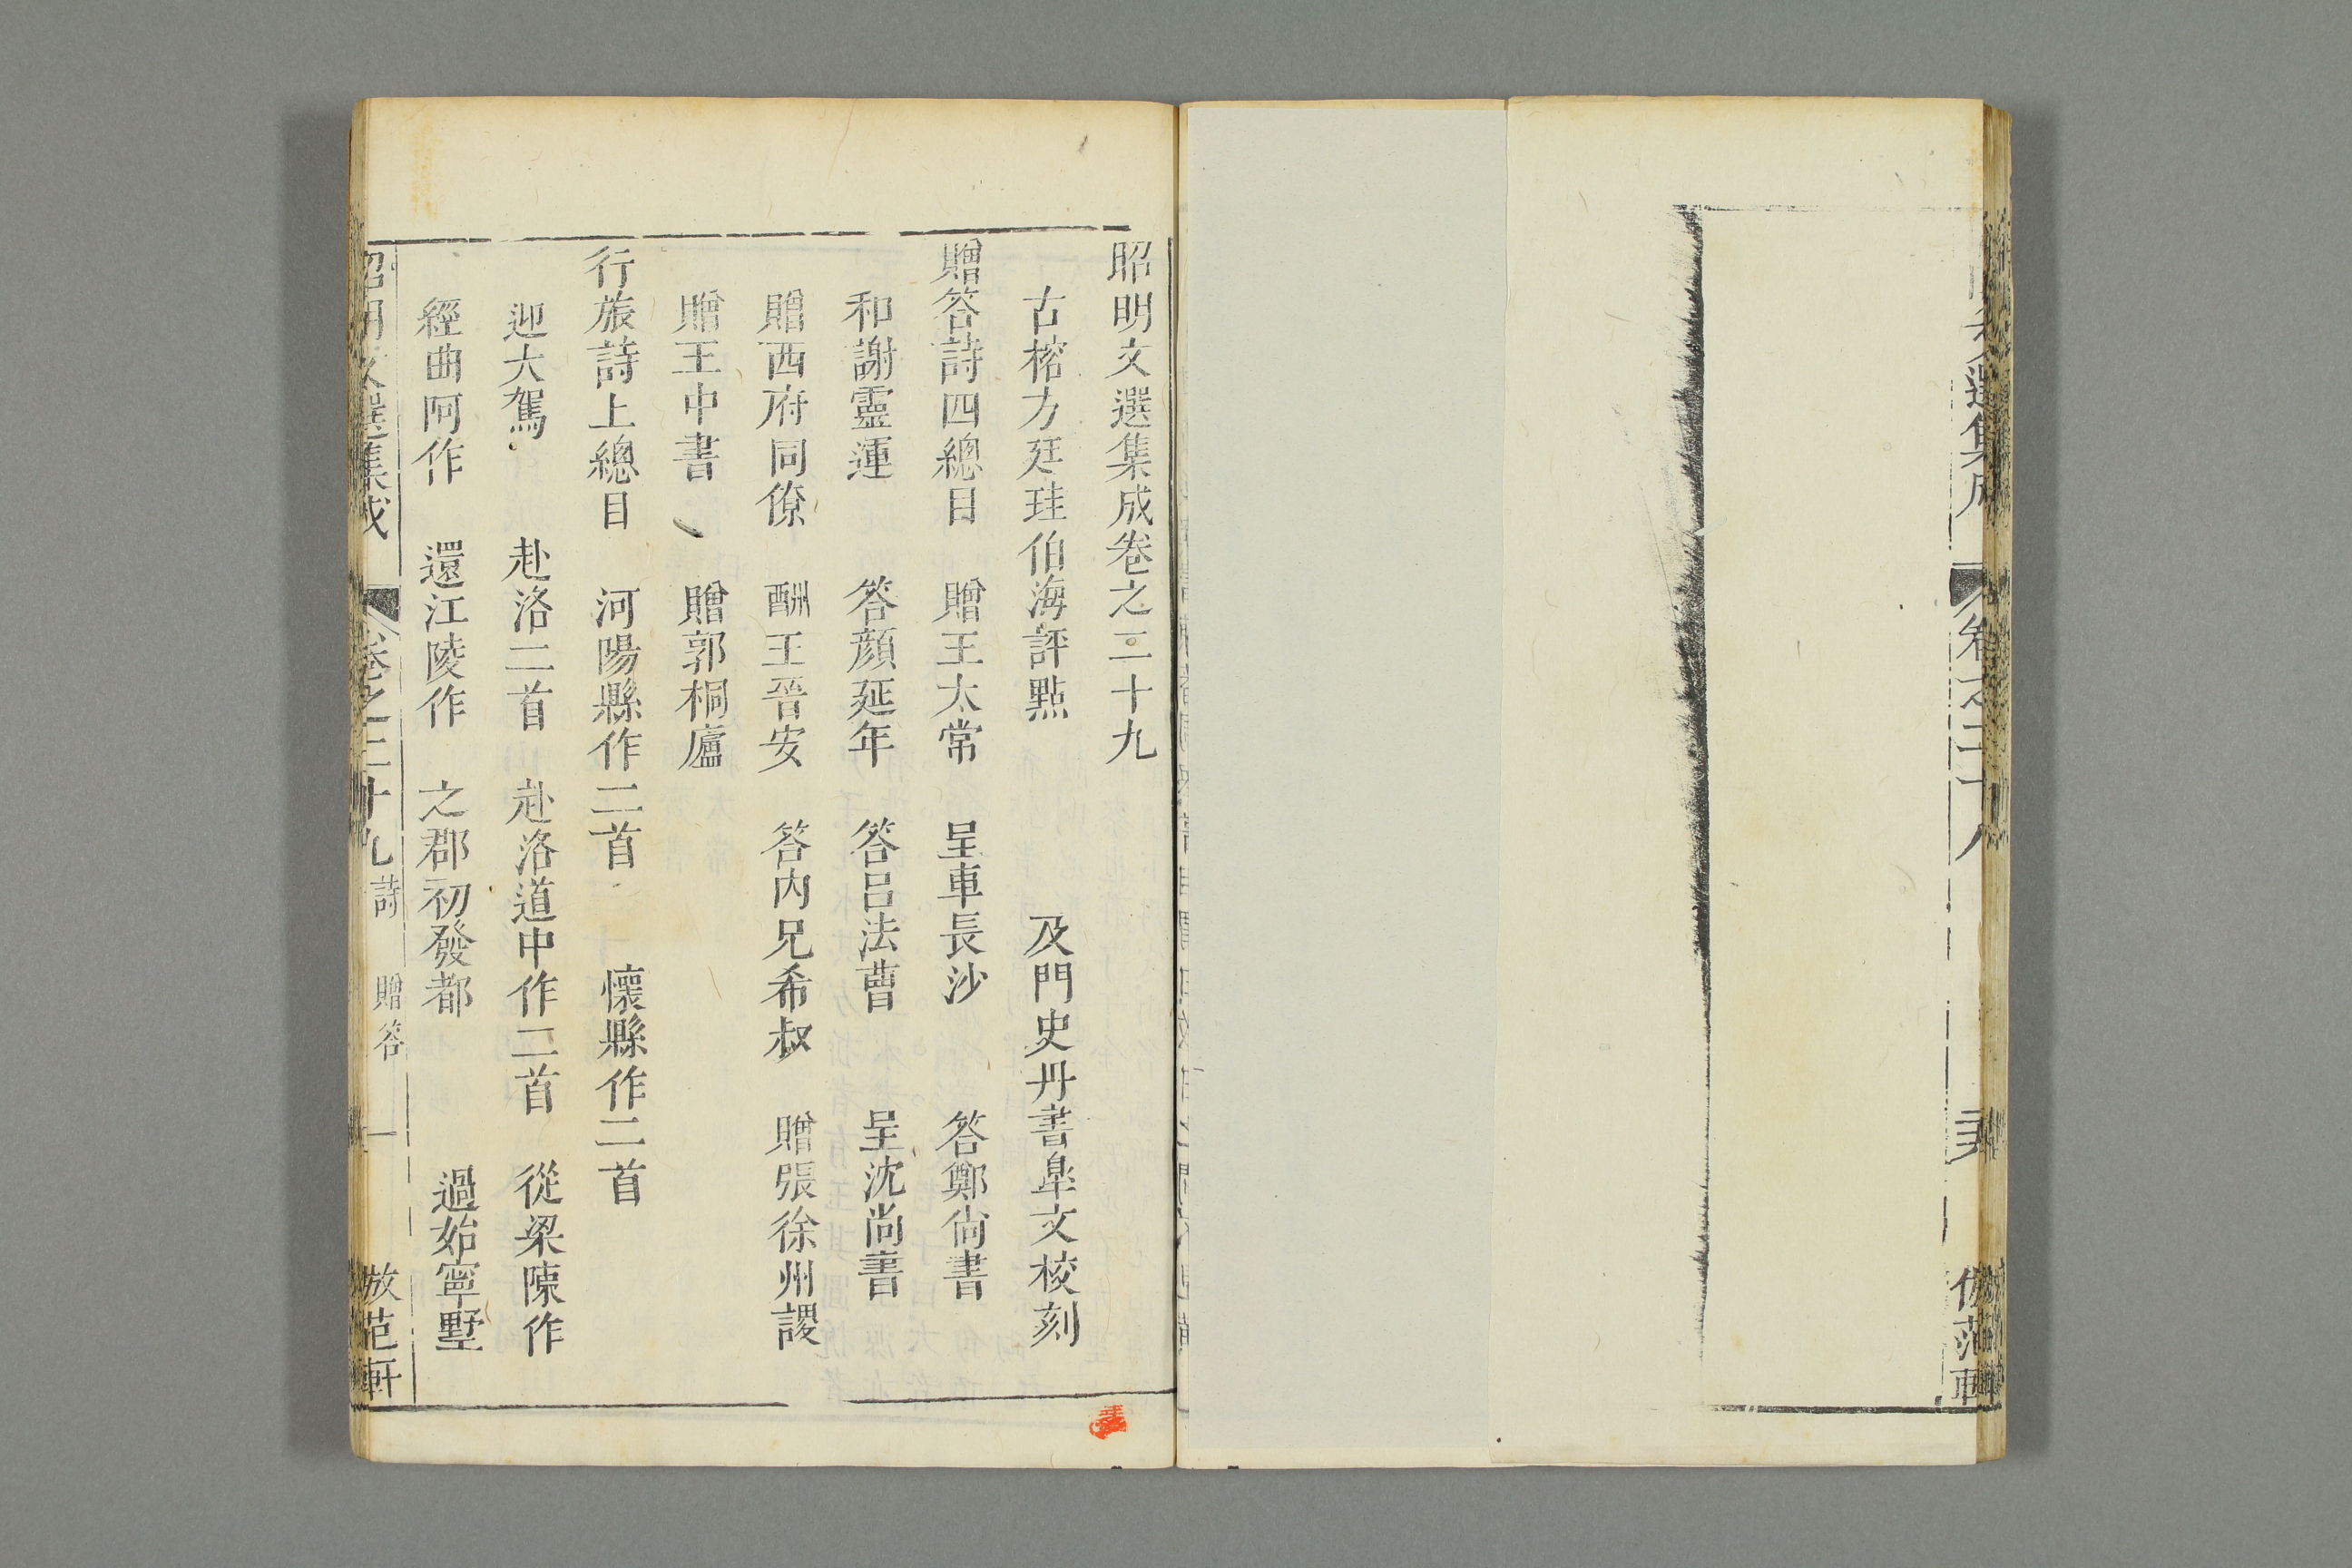 昭明文選集成卷之二十九
古榕方廷珪伯海評點 及門史丹書臯文校刻
贈答詩四總目 贈王太常 呈車長沙 答鄭尙書
和謝靈運 答顏延年 答呂法曹 呈沈尚書
贈西府同僚 酬王晉安 答內兄希叔 贈張徐州謖
贈王中書 贈郭桐廬
行旅詩上總目 河陽縣作二首 懷縣作二首
迎大駕 赴洛二首 赴洛道中作二首 從梁陳作
經曲阿作 還江陵作 之郡初發都 過始寧墅
昭明文選集成 卷之二十九 詩 贈答 一 放范軒
文選集成 卷之二十八